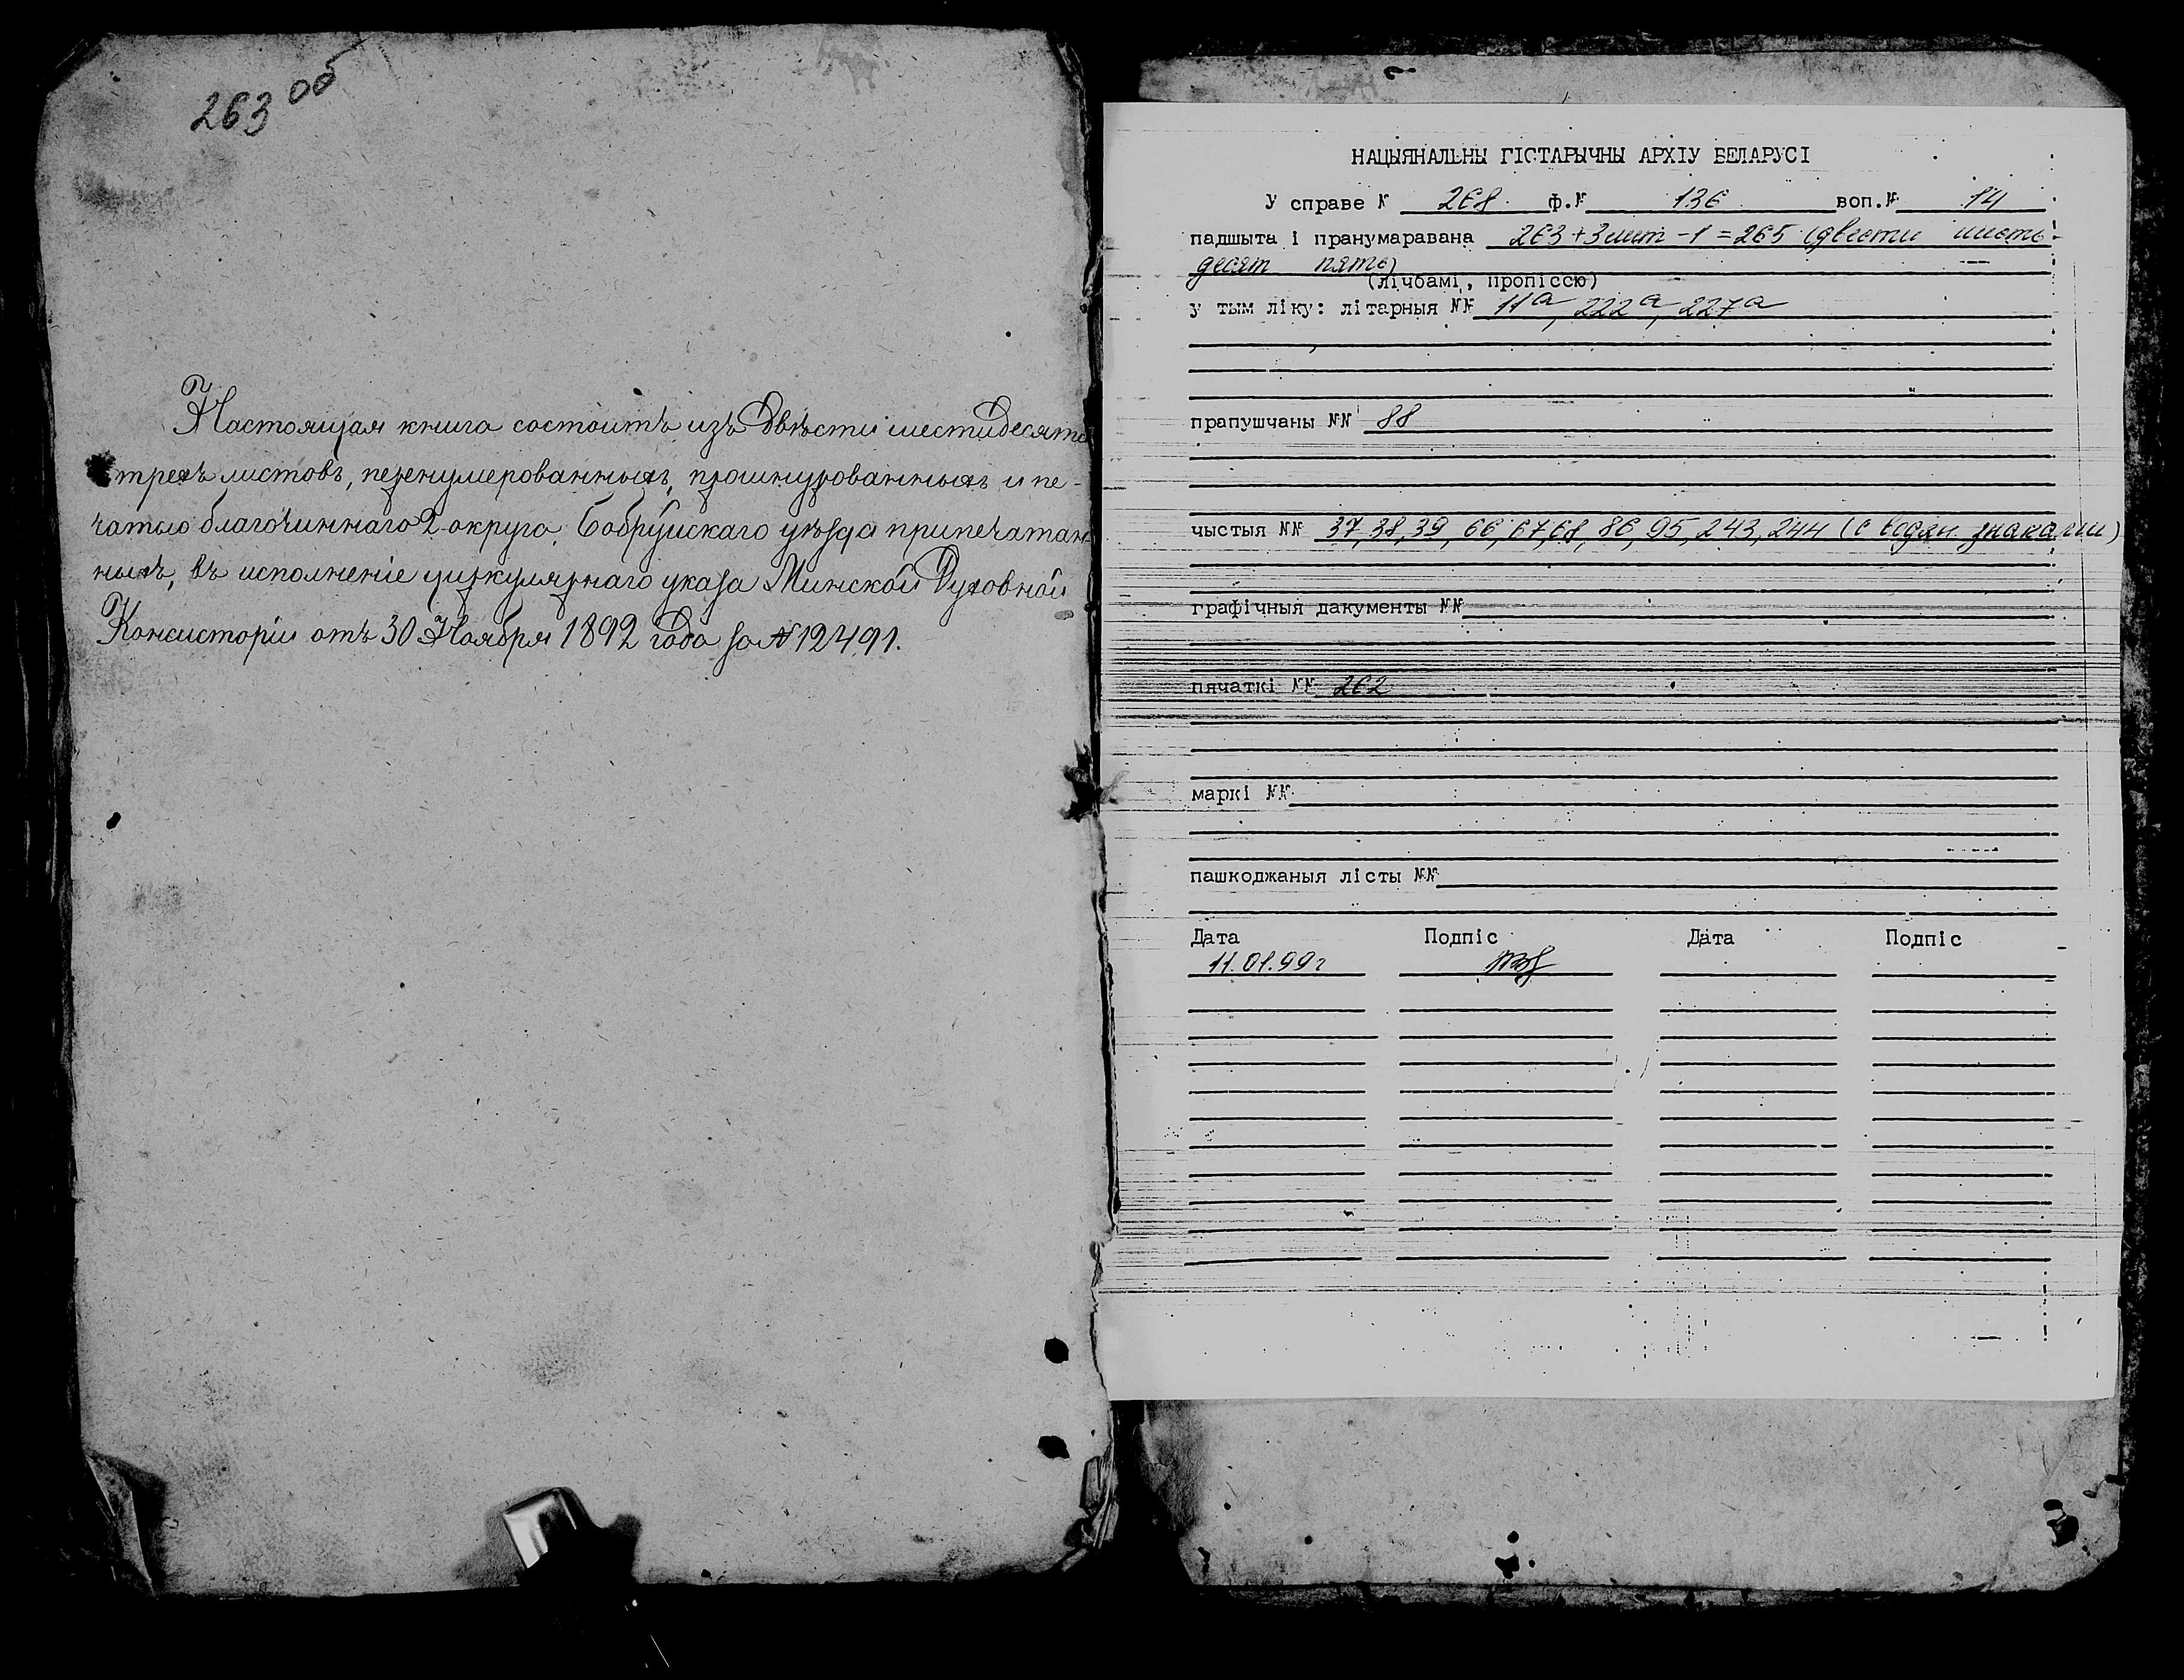 263 об
Настоящая книга состоитъ изъ Двѣсти шестидесяти
трехъ листовъ, перенумерованныхъ, прошнурованныхъ и пе-
чатью благочиннаго 2 округа Бобруйскаго уѣзда припечатан
ныхъ, въ исполненіе циркулярнаго указа Минской Духовной
Консисторіи отъ 30 Ноября 1892 года за № 12491.
НАЦЫЯНАЛЬНЫ ГІСТАРЫЧНЫ АРХІУ БЕЛАРУСІ
У справе № 268 ф.№ 136 воп.№ 14
падшыта і пранумаравана 263+3лит-1=265 (двести шесть-
десят пять)
(лічбамі, пропіссю)
у тым ліку: літарныя №№ 11а, 222а, 227а
прапушчаны №№ 88
чыстыя №№ 37, 38, 39, 66, 67, 68, 86, 95, 243, 244 (с водян. знаками)
графічныя дакументы №№
пячаткі №№ 262
маркі №№
пашкоджаныя лісты №№
Дата Подпіс Дата Подпіс
11.01.99г